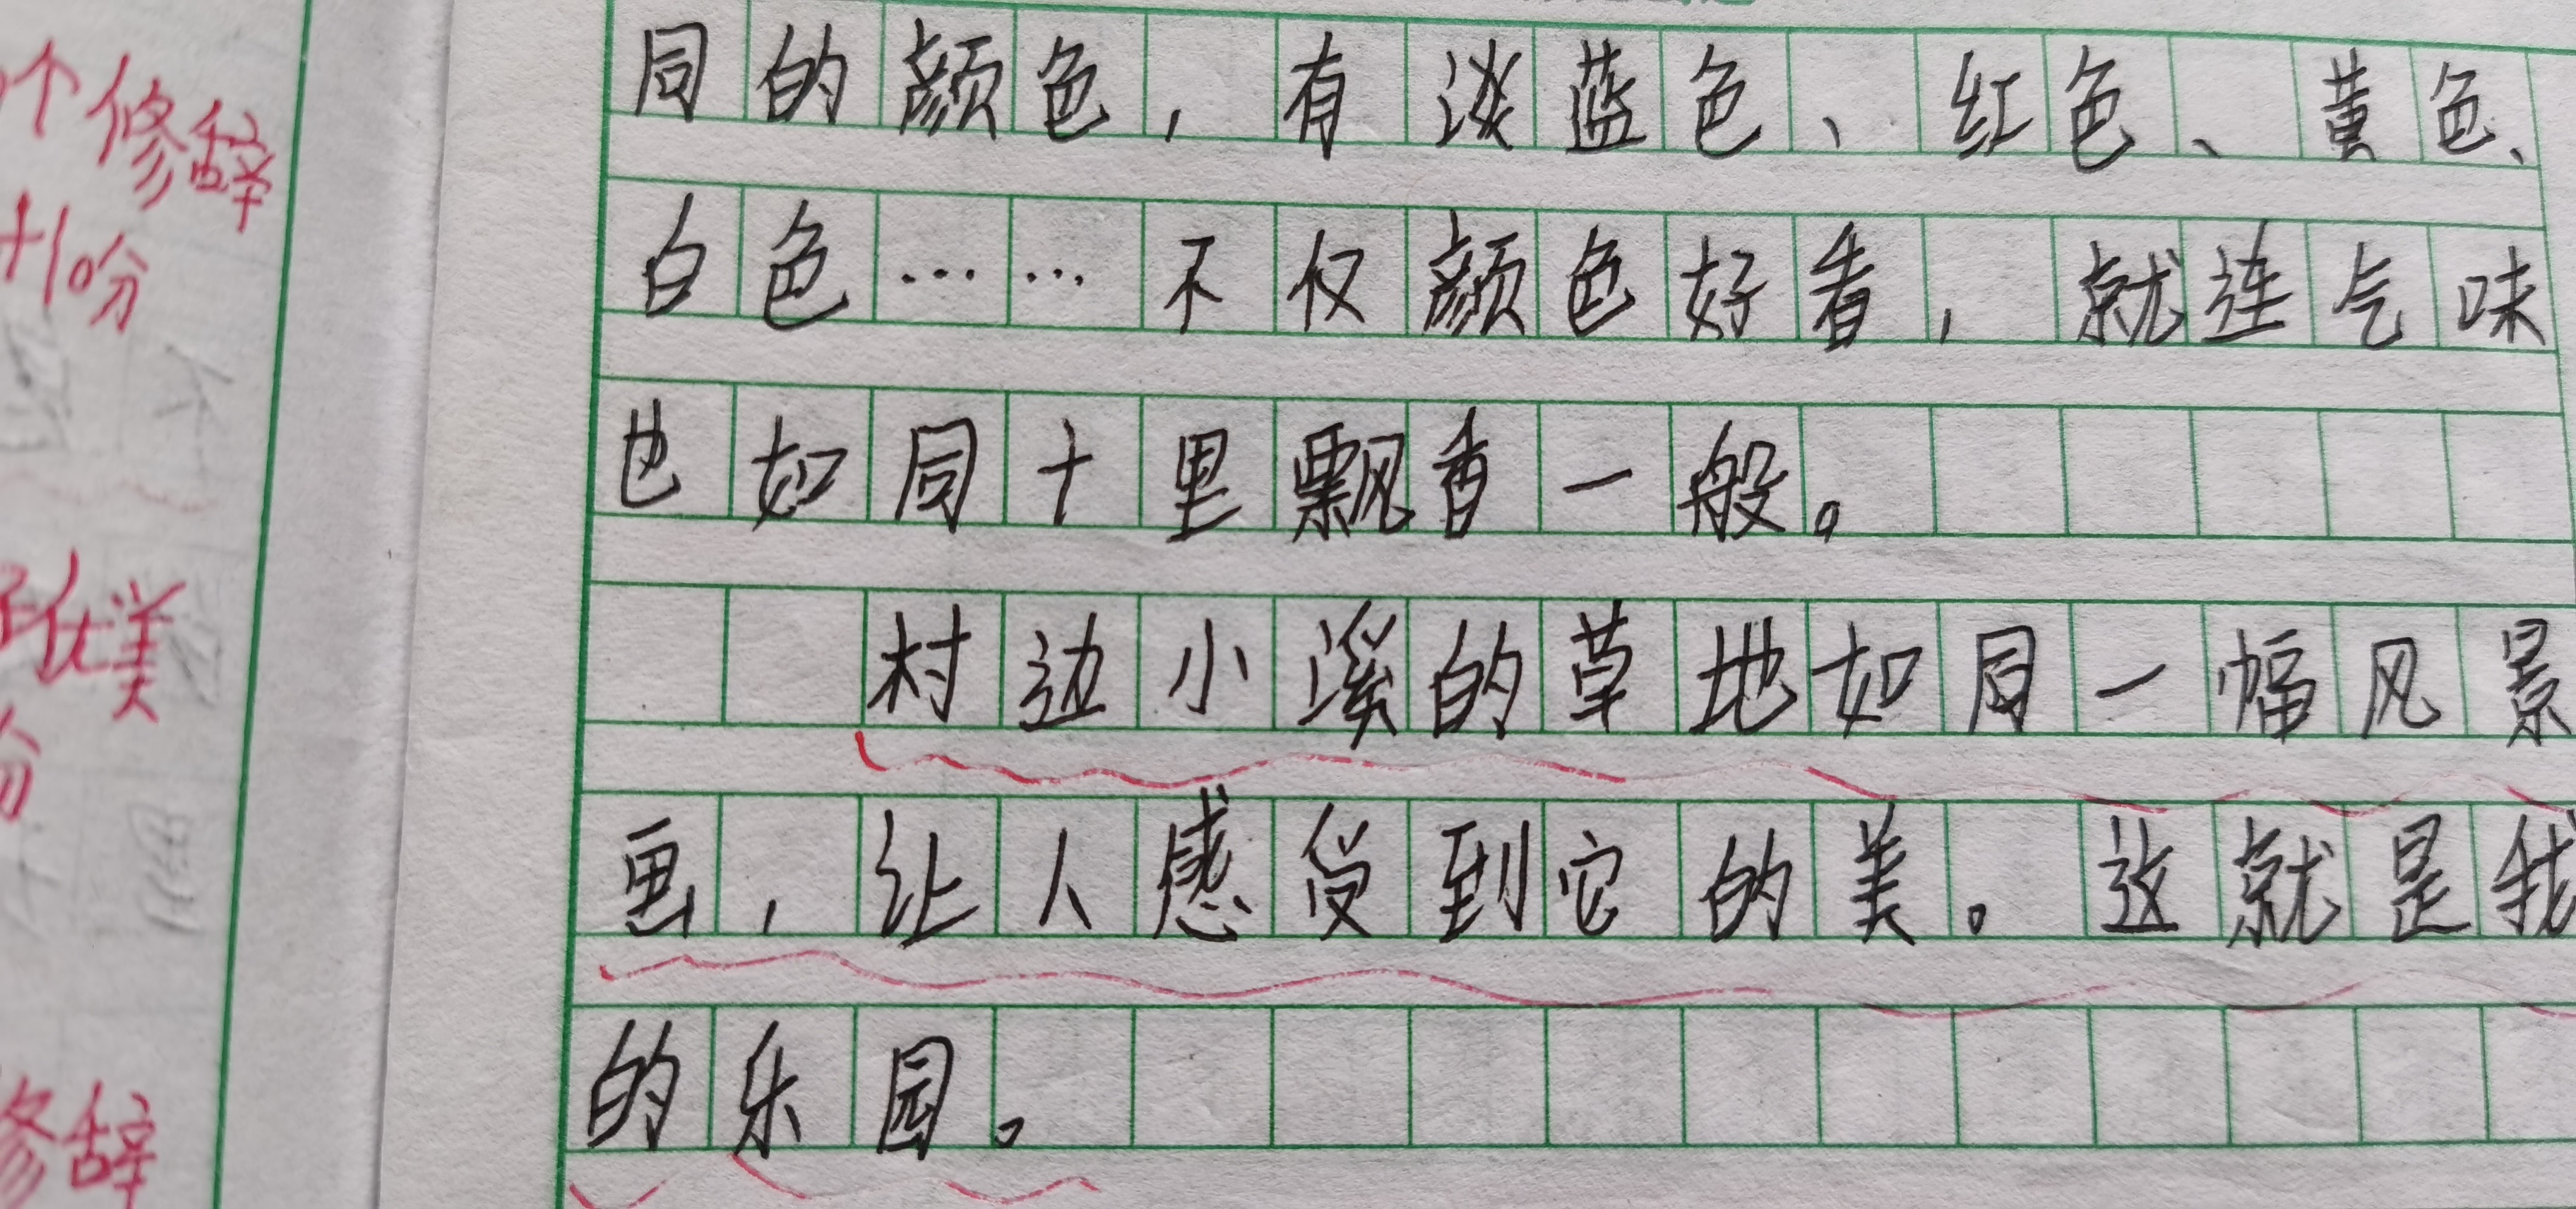 同的颜色，有淡蓝色、红色、黄色、
白色……不仅颜色好看，就连气味
也如同十里飘香一般。
村边小溪的草地如同一幅风景
画，让人感受到它的美。这就是我
的乐园。
个修辞
+10分
优美
分
修辞